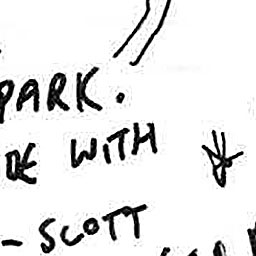 PARK.
DE WITH
- SCOTT